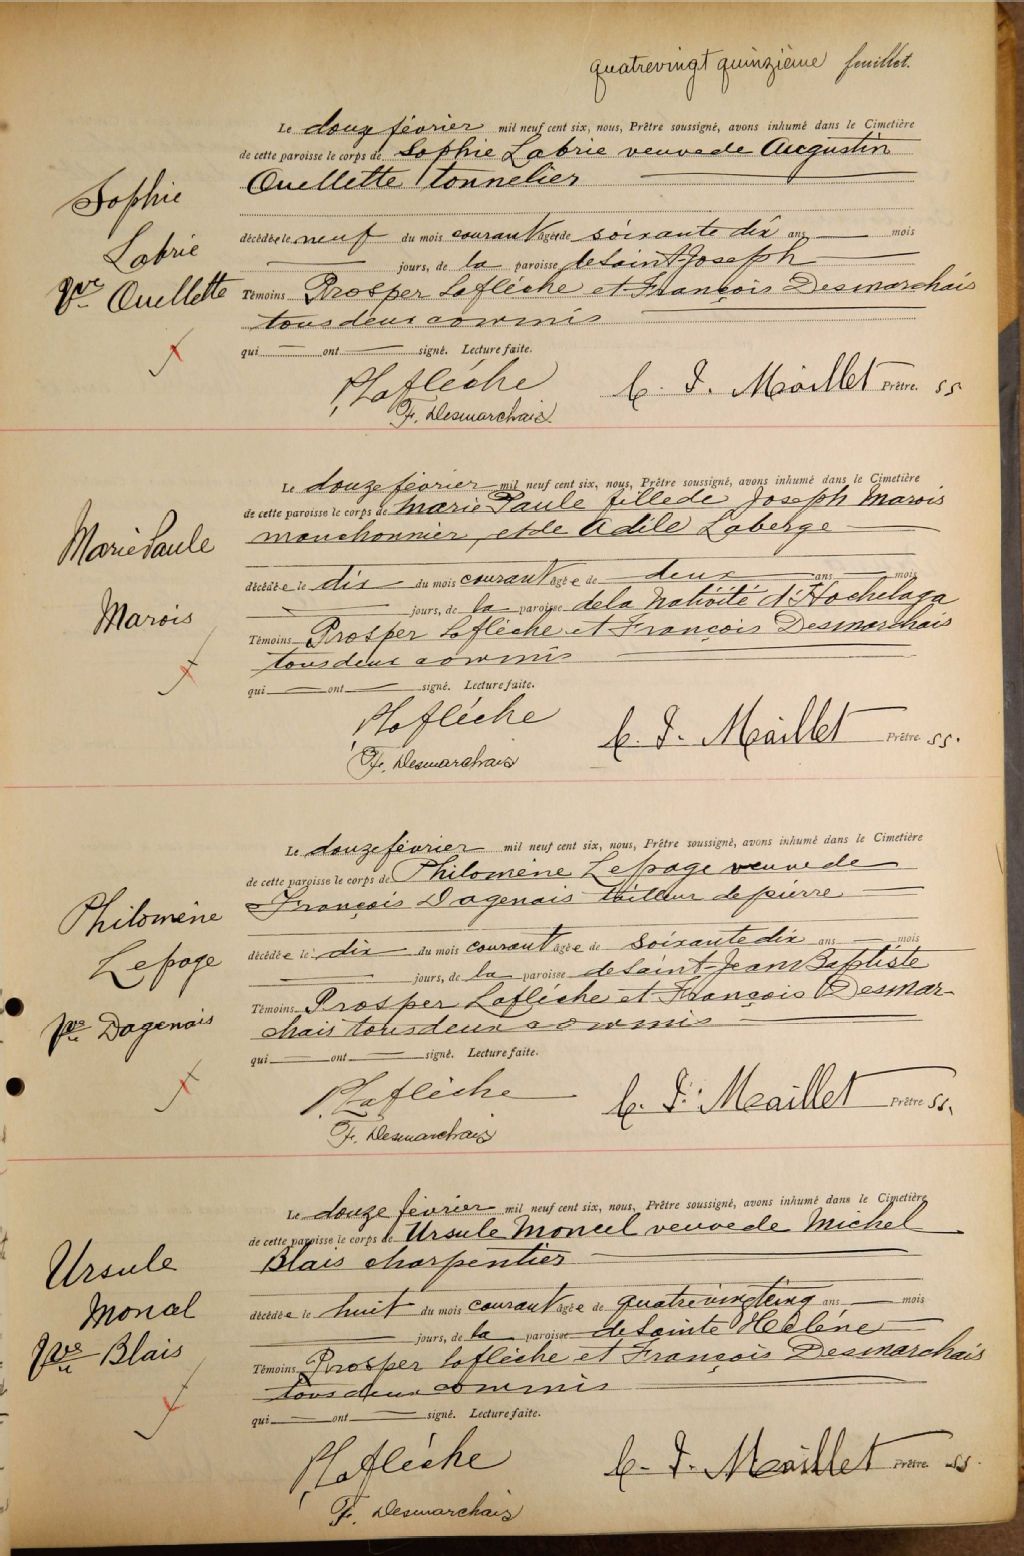 quatrevingt quinzième feuillet.
Le douze février mil neuf cent six, nous, Prêtre soussigné, avons inhumé dans le Cimetière
de cette paroisse le corps de Sophie Labrie veuve de Augustin
Ouellette tonnelier
Sophie
Labrie
Ouellette
décédée le neuf du mois courant âgée de soixante dix ans mois
jours, de la paroisse de Saint Joseph
Témoins Prosper Laflèche et François Desmarchais
tous deux commis
qui ont signé. Lecture faite.
P. Lafléche
F. Desmarchais.
C. J. Maillet Prêtre. SS
Le douze février mil neuf cent six, nous, Prêtre soussigné, avons inhumé dans le Cimetière
de cette paroisse le corps de Marie Paule fille de Joseph Marois
manchonnier, et de Adèle Laberge
Marie Paule
Marois
décédée le dix du mois courant âgée de deux ans mois
jours, de la paroisse de la Nativité d'Hochelaga
Témoins Prosper Laflèche et François Desmarchais
tous deux commis
qui ont signé. Lecture faite.
P. Lafléche
F. Desmarchais
C. J. Maillet Prêtre SS.
Le douze février mil neuf cent six, nous, Prêtre soussigné, avons inhumé dans le Cimetière
de cette paroisse le corps de Philomène Lepage veuve de
François Dagenais tailleur de pierre
Philomène
Lepage
Dagenais
décédée le dix du mois courant âgée de soixante dix ans mois
jours, de la paroisse de Saint-Jean Baptiste
Témoins Prosper Lafléche et François Desmar-
chais tous deux commis
qui ont signé. Lecture faite.
P. Lafléche
F. Desmarchais
C. J. Maillet Prêtre SS.
Le douze février mil neuf cent six, nous, Prêtre soussigné, avons inhumé dans le Cimetière
de cette paroisse le corps de Ursule Moncel veuve de Michel
Blais charpentier
Ursule
Moncel
Blais
décédée le huit du mois courant âgée de quatrevingtcinq ans mois
jours, de la paroisse de Sainte Hélène
Témoins Prosper Laflèche et François Desmarchais
tous deux commis
qui ont signé. Lecture faite.
P. Lafléche
F. Desmarchais
C. J. Maillet Prêtre. SS.